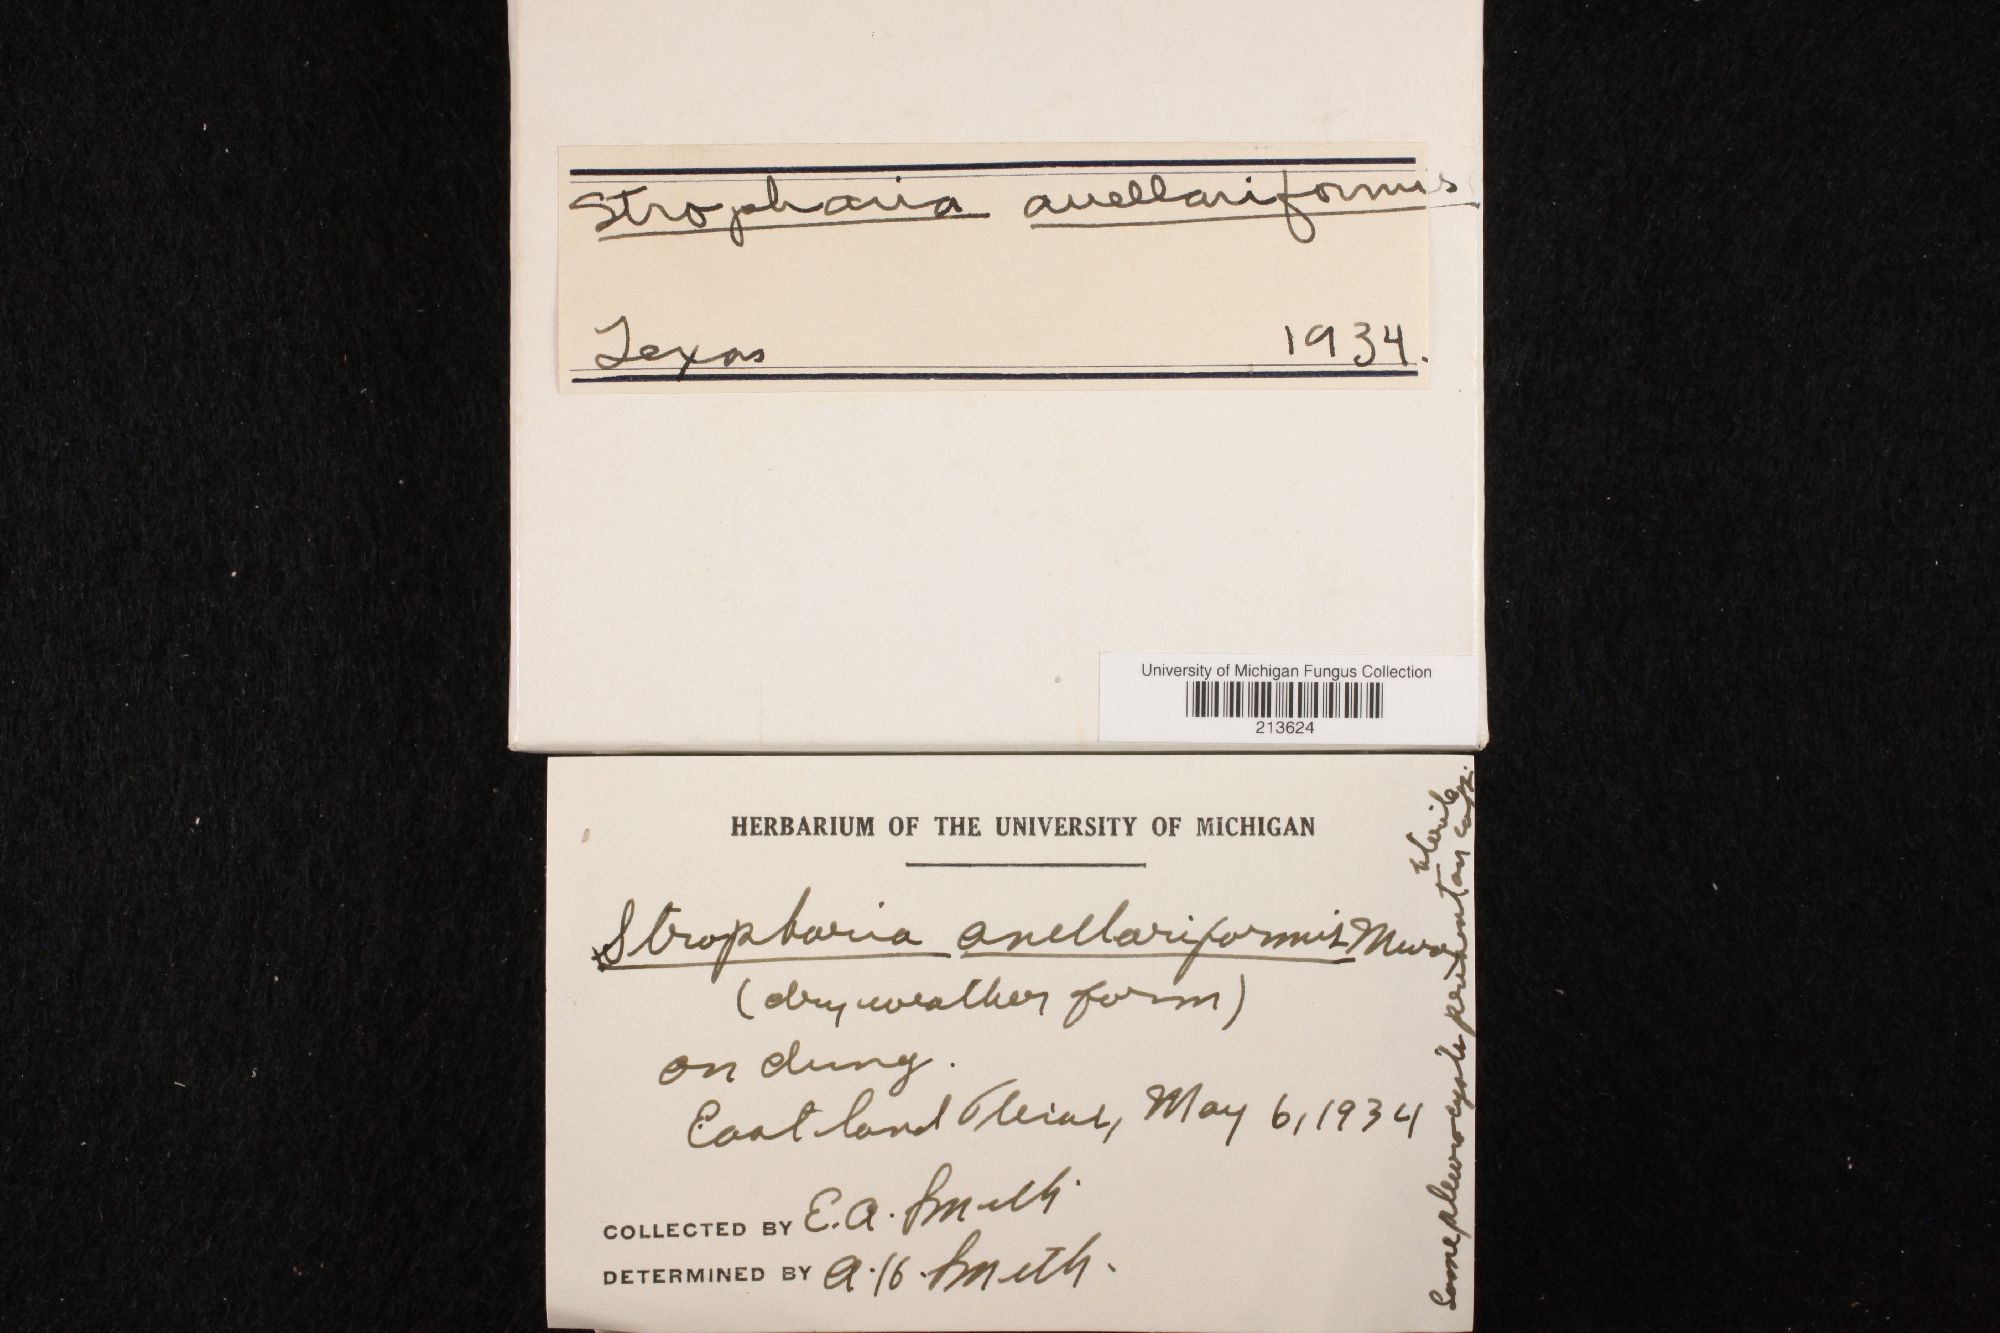 Stropharia anellariformis
Texas 1934.
University of Michigan Fungus Collection
213624
HERBARIUM OF THE UNIVERSITY OF MICHIGAN
Stropharia anellariformis Murr
(dry weather form)
on dung.
Eastland Texas, May 6, 1934
COLLECTED BY E.A. Smith
DETERMINED BY A.H. Smith.
Some pleurocystidia present on
sterile